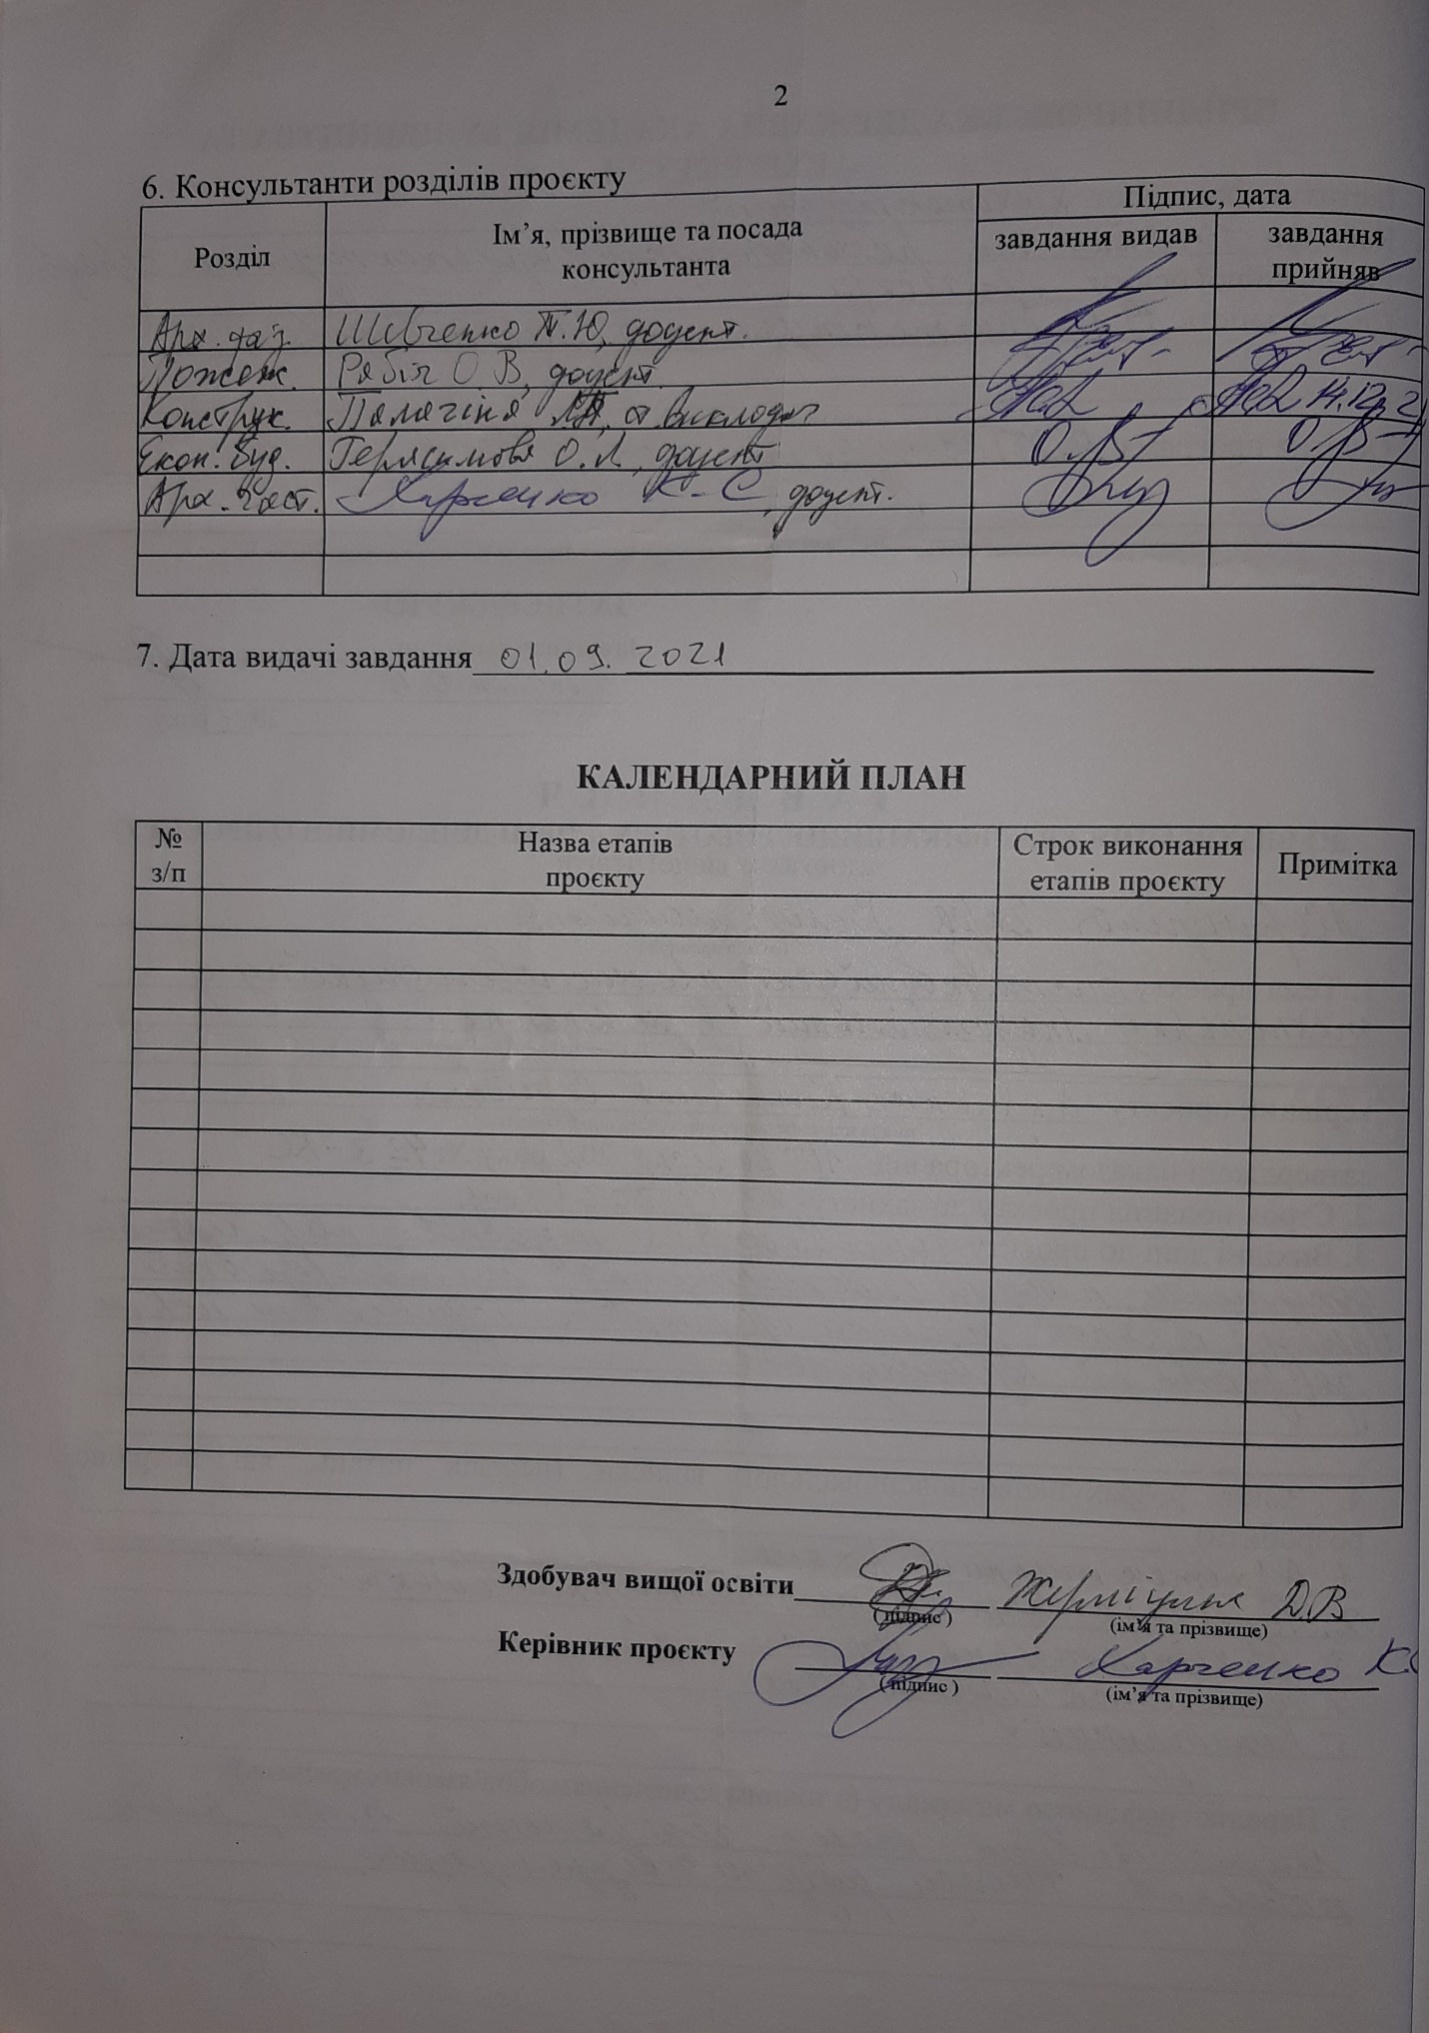 2
6. Консультанти розділів проєкту
Розділ
Ім’я, прізвище та посада
консультанта
Підпис, дата
завдання видав
завдання
прийняв
Шевченко Т.Ю, доцент.
Пожеж. Рябіч О.В, доцент.
Конструк. ст. викладач 14.12.21
Екон. буд. Герасимова О.Л, доцент
Арх. част. Харченко К.С, доцент.
7. Дата видачі завдання 01.09.2021
КАЛЕНДАРНИЙ ПЛАН
№
з/п
Назва етапів
проєкту
Строк виконання
етапів проєкту
Примітка
Здобувач вищої освіти Д.В
(підпис) (ім’я та прізвище)
Керівник проєкту Харченко К.
(підпис) (ім’я та прізвище)